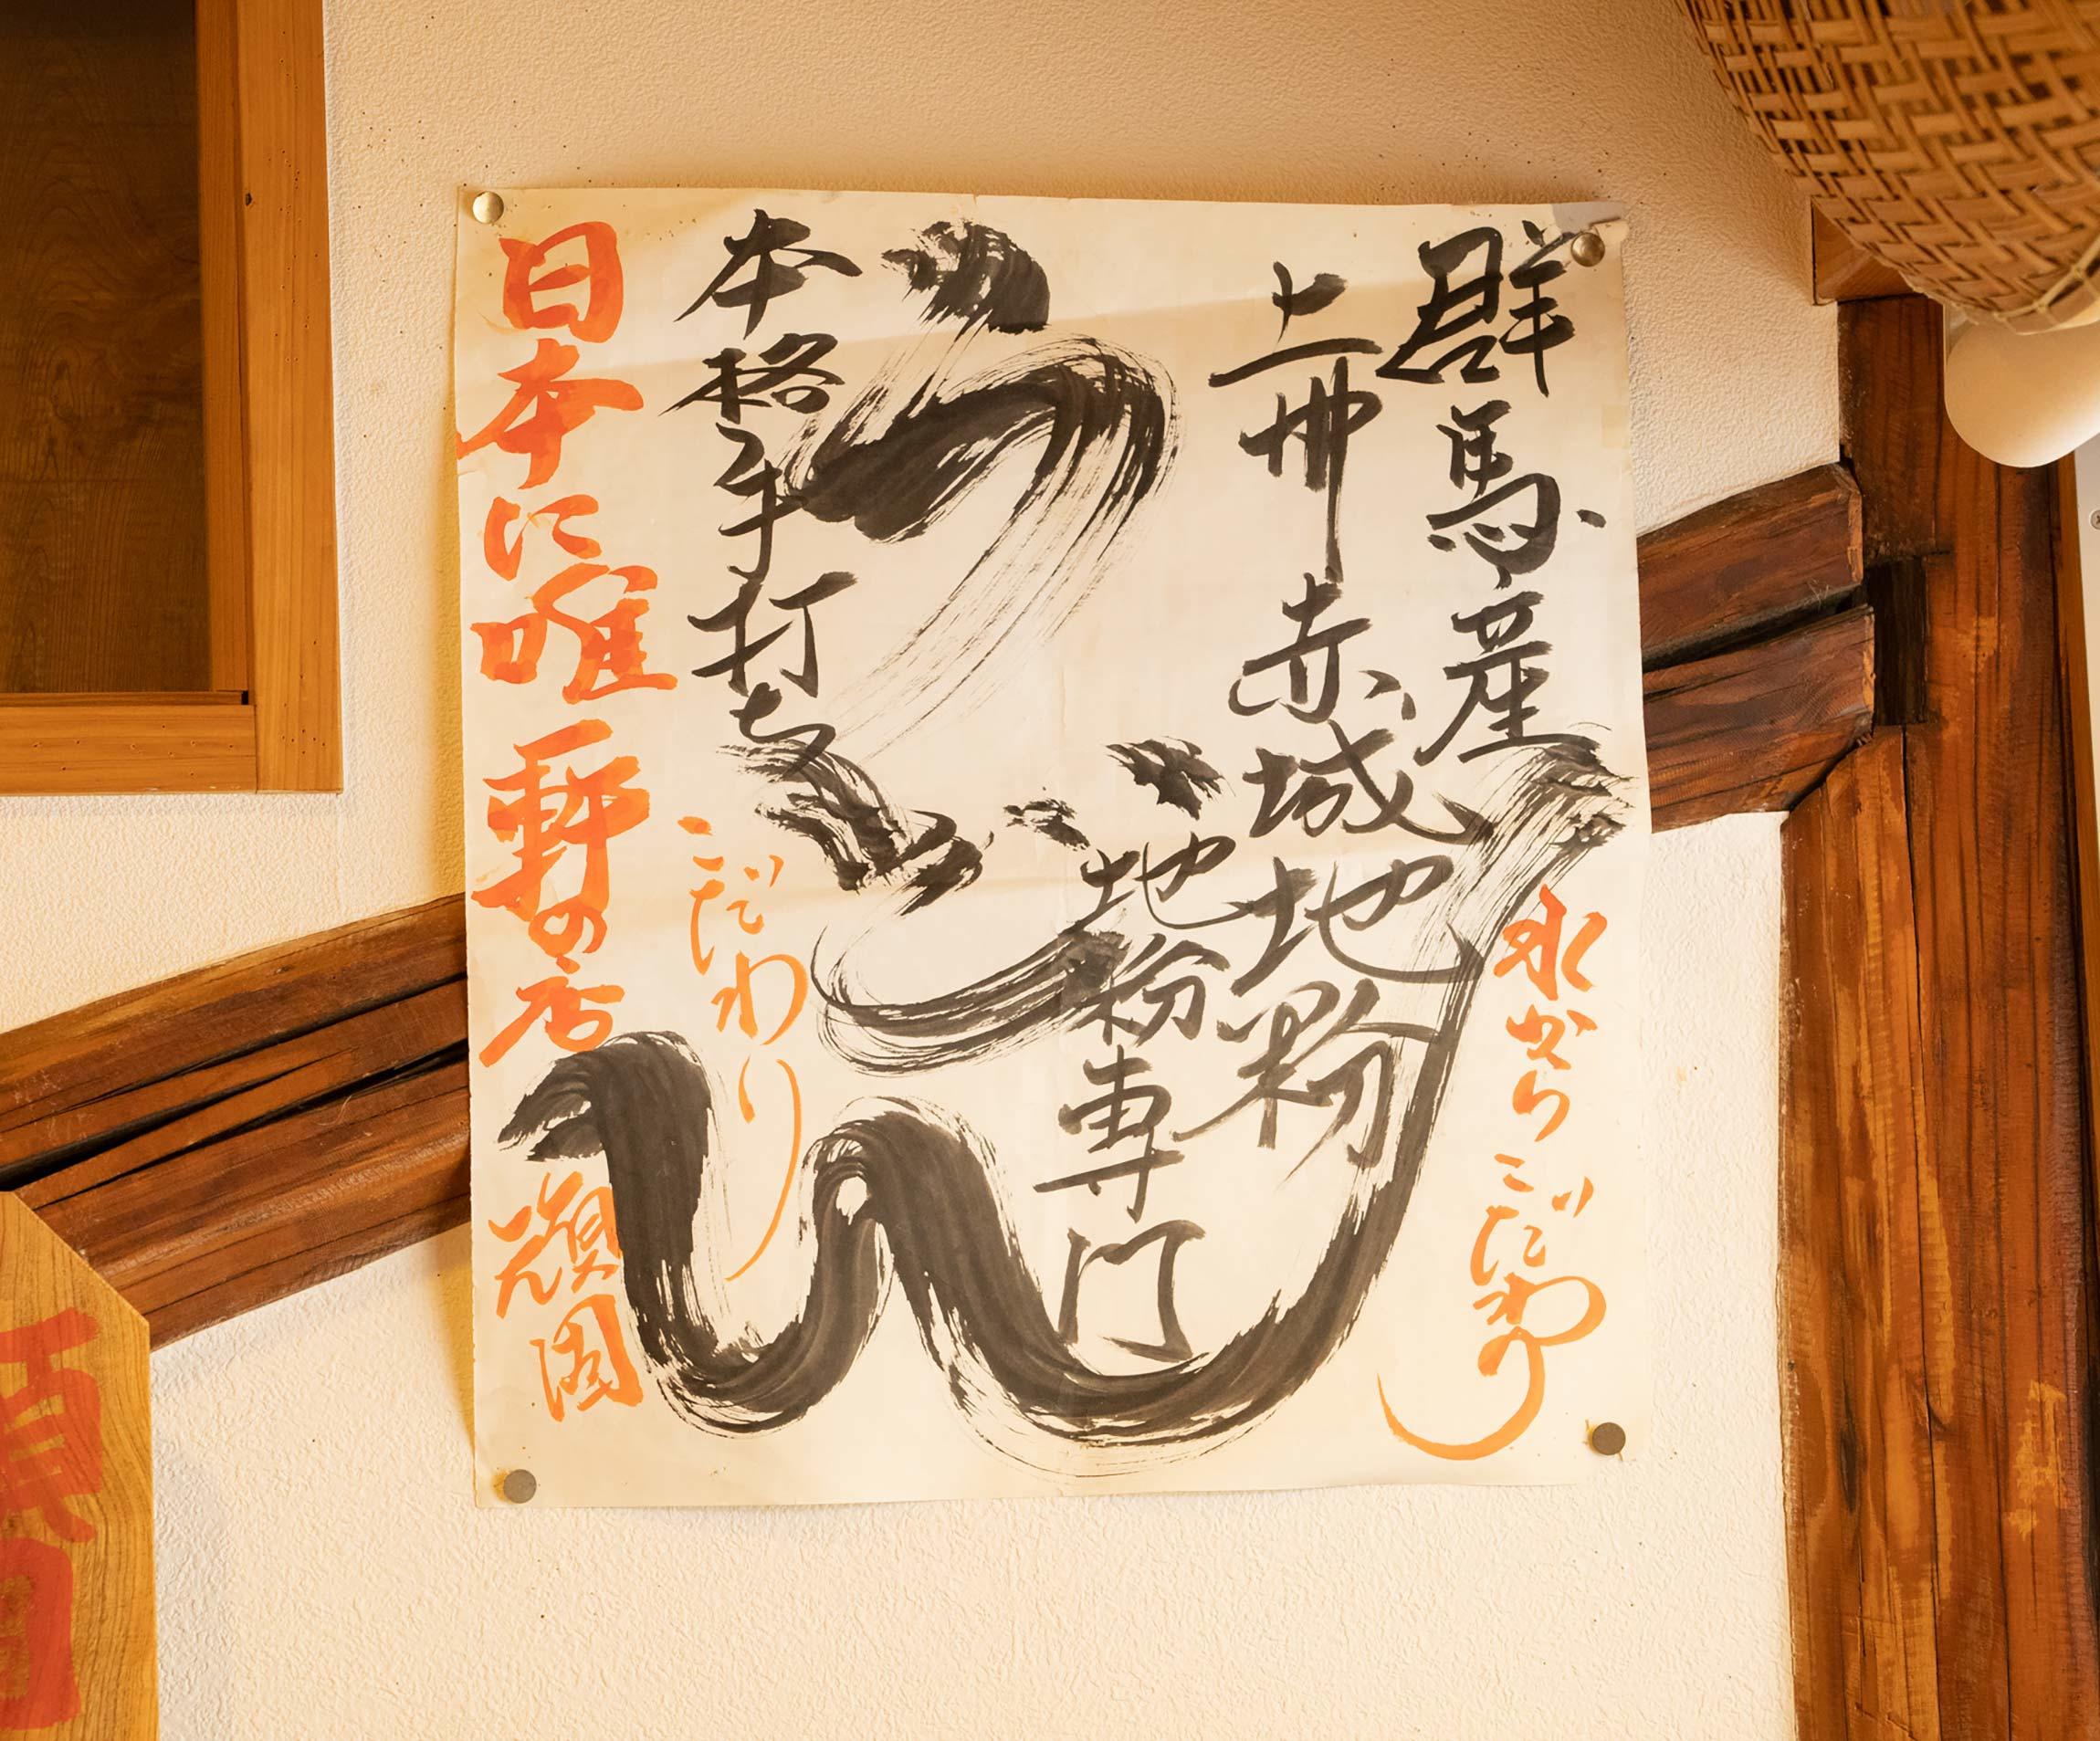 群馬産
水からこだわり
上州赤城地粉
地粉専門
うどん
本格手打ち
こだわり
日本に唯一軒の店
頑固